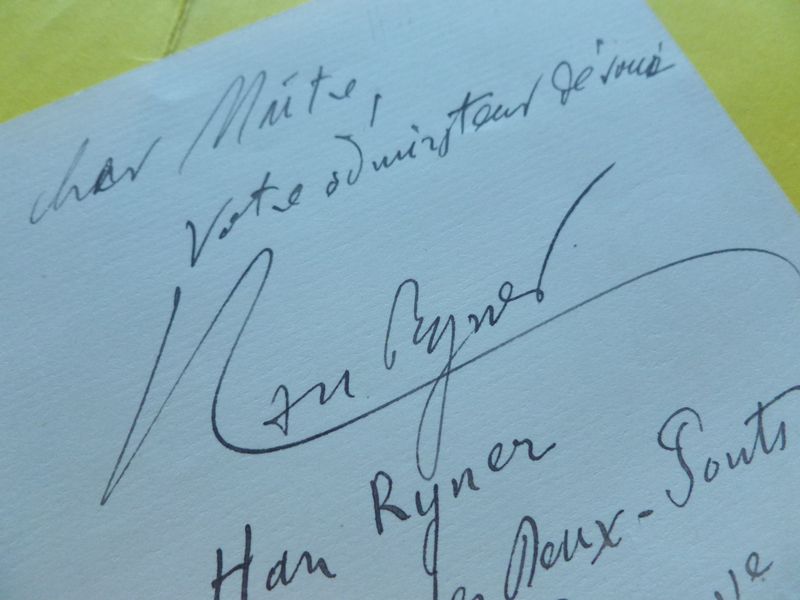 cher Maître,
Votre admirateur dévoué
Han Ryner
Han Ryner
Deux-Ponts